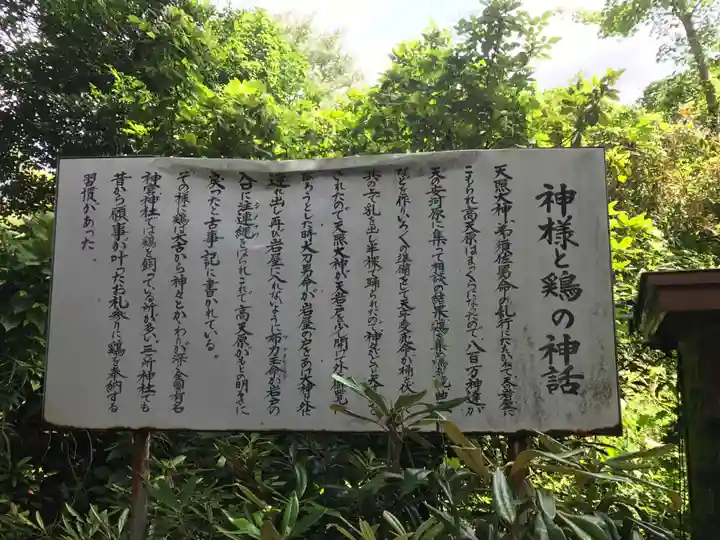 神様と鶏の神話
天照大神が須佐男命の乱行にたえかねて天岩屋に
こもられ高天原はまっくらになったので、八百万神達が
天の安河原に集って相談の結果
などを作りいろいろの準備をして天宇受売命が桶を伏
で踊られたので神々がどっと
されたので天照大神が天岩戸を少し開けて外を
られようとした時大力男命が岩屋の戸をあけ大神を外へ
連れ出し再び岩屋に入れないように布刀玉命が岩戸の
口に注連縄をはられこれで高天原がもとの明るさに
戻ったと古事記に書かれている。
その様に鶏は大古から神々とかかわりが深く
神宮神社では鶏を飼っている所が多い三所神社でも
昔から願事が叶ったお礼参りに鶏を奉納する
習慣があった。